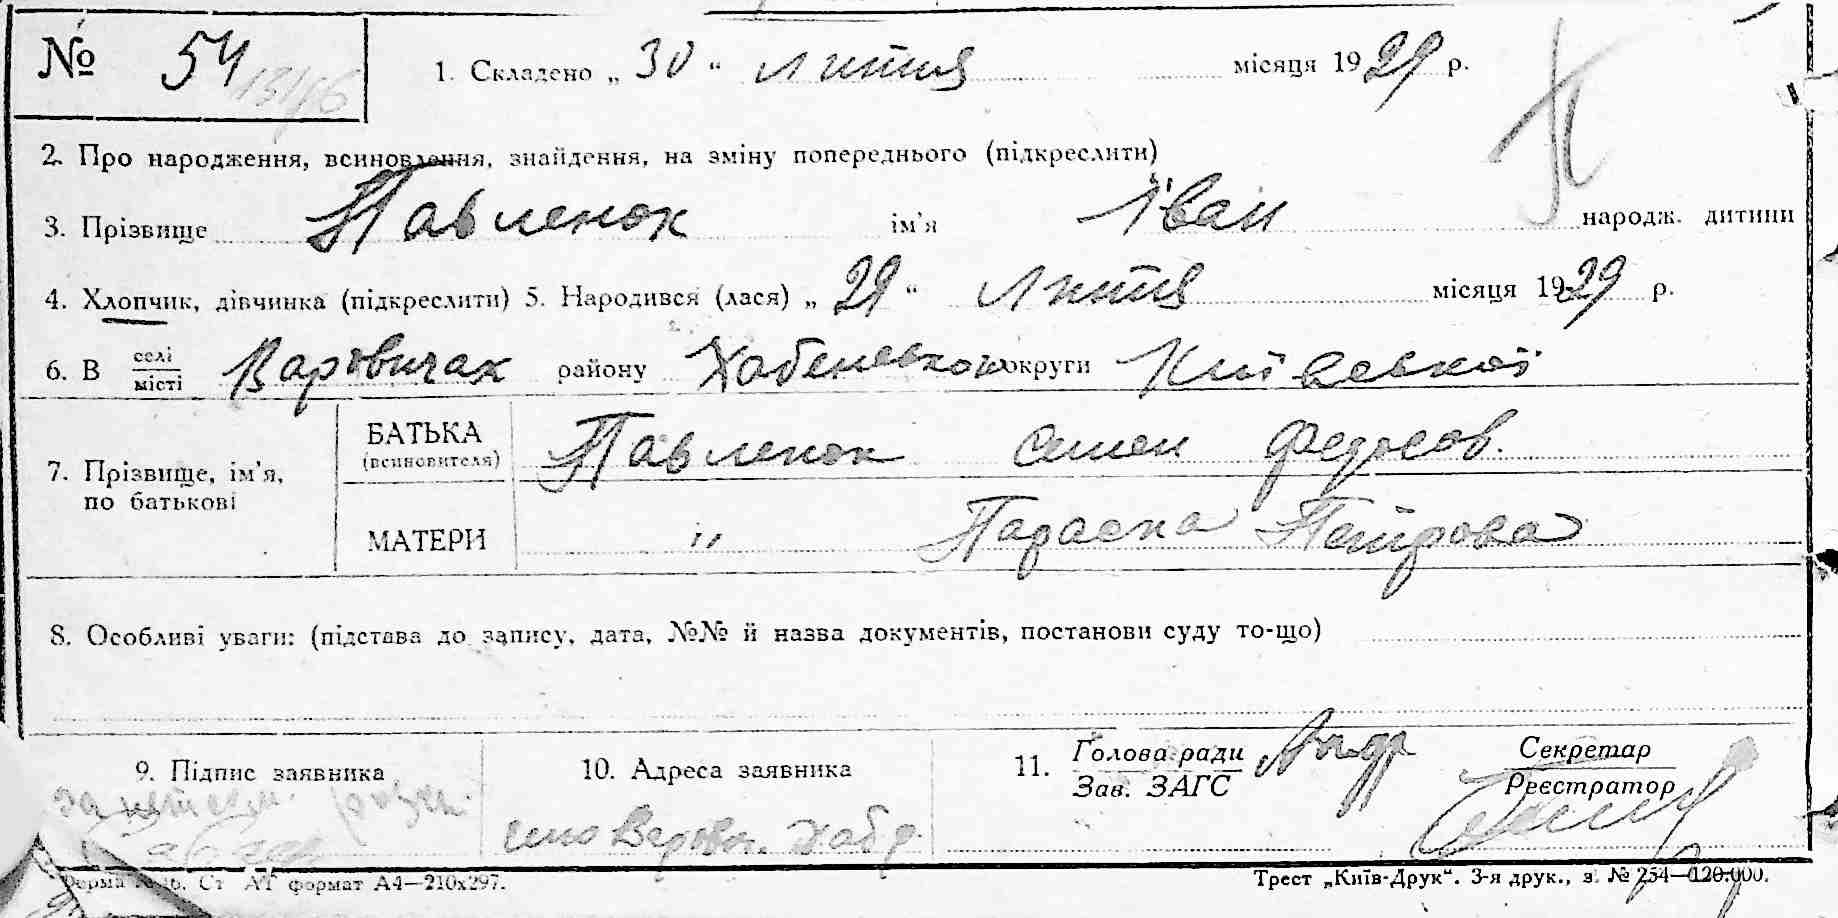 № 54
1. Складено „ 30 “ Липня місяця 1929 р.
2. Про народження, всиновлення, знайдення, на зміну попереднього (підкреслити)
3. Прізвище Павленок ім’я Іван народж. дитини
4. Хлопчик, дівчинка (підкреслити) 5. Народився (лася) „ 29 “ Липня місяця 1929 р.
6. В селі/місті Варовичах району Хабенської округи Київської
7. Прізвище, ім’я, по батькові
БАТЬКА (всиновителя) Павленок Семен Федосов.
МАТЕРИ " Параска Петрова
8. Особливі уваги: (підстава до запису, дата, №№ й назва документів, постанови суду то-що)
9. Підпис заявника
10. Адреса заявника
11. Голова ради
Зав. ЗАГС
Секретар
Реєстратор
Форма Ст АТ формат А4—210х297.
Трест „Київ-Друк“. 3-я друк., з. № 254—120.000.